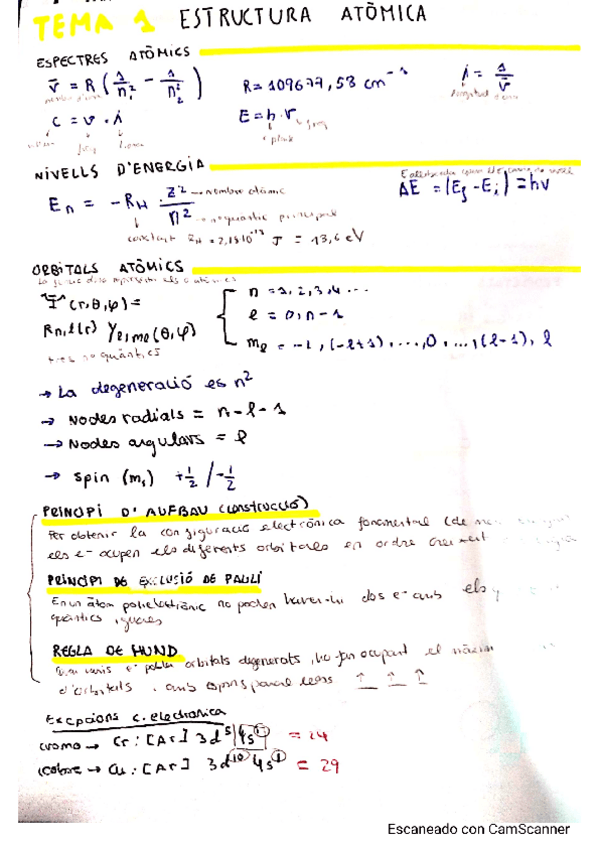 TEMA 1 ESTRUCTURA ATÒMICA
ESPECTRES ATÒMICS
ν̄ = R (1/n₁² - 1/n₂²) R = 109677,53 cm⁻¹ λ = 1/ν̄
c = ν · λ E = h · ν
NIVELLS D'ENERGIA
Eₙ = -R_H · Z²/n² → nombre atòmic ΔE = |E_f - E_i| = hν
→ nº quàntic principal
constant = 13,6 eV
ORBITALS ATÒMICS
Ψ(r,θ,φ) =
Rn,l(r) Yl,ml(θ,φ)
tres nº quàntics
n = 1,2,3,4...
l = 0, n-1
mₗ = -l, (-l+1), ..., 0, ..., (l-1), l
→ La degeneració es n²
→ Nodes radials = n-l-1
→ Nodes angulars = l
→ spin (mₛ) +1/2 / -1/2
PRINCIPI D'AUFBAU (CONSTRUCCIÓ)
Per obtenir la configuració electrònica fonamental (de
els e- ocupen els diferents orbitales en ordre creixent
PRINCIPI DE EXCLUSIÓ DE PAULI
En un àtom polielectrònic no poden haver-hi dos e- amb els
quàntics iguals
REGLA DE HUND
orbitals degenerats, ho fan ocupant el màxim
d'orbitals, amb espins ↑ ↑ ↑
Excpcions c. electronica
cromo → Cr: [Ar] 3d⁵ 4s¹ = 24
cobre → Cu: [Ar] 3d¹⁰ 4s¹ = 29
Escaneado con CamScanner